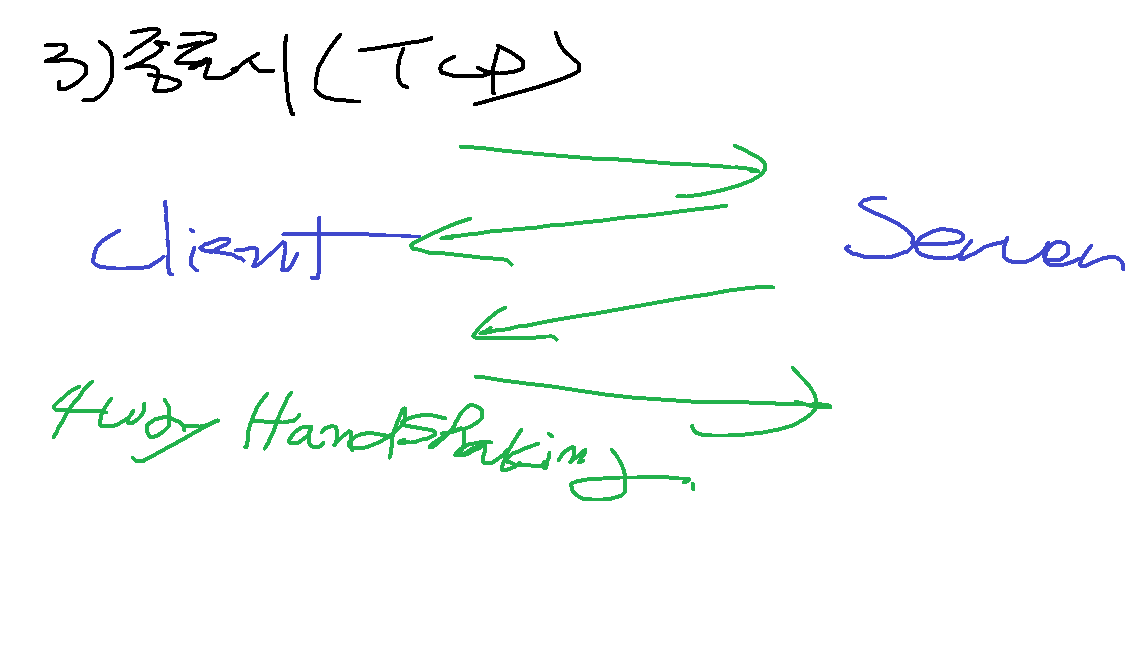 3)종료시 (TCP)
Client Server
4way Handshaking.